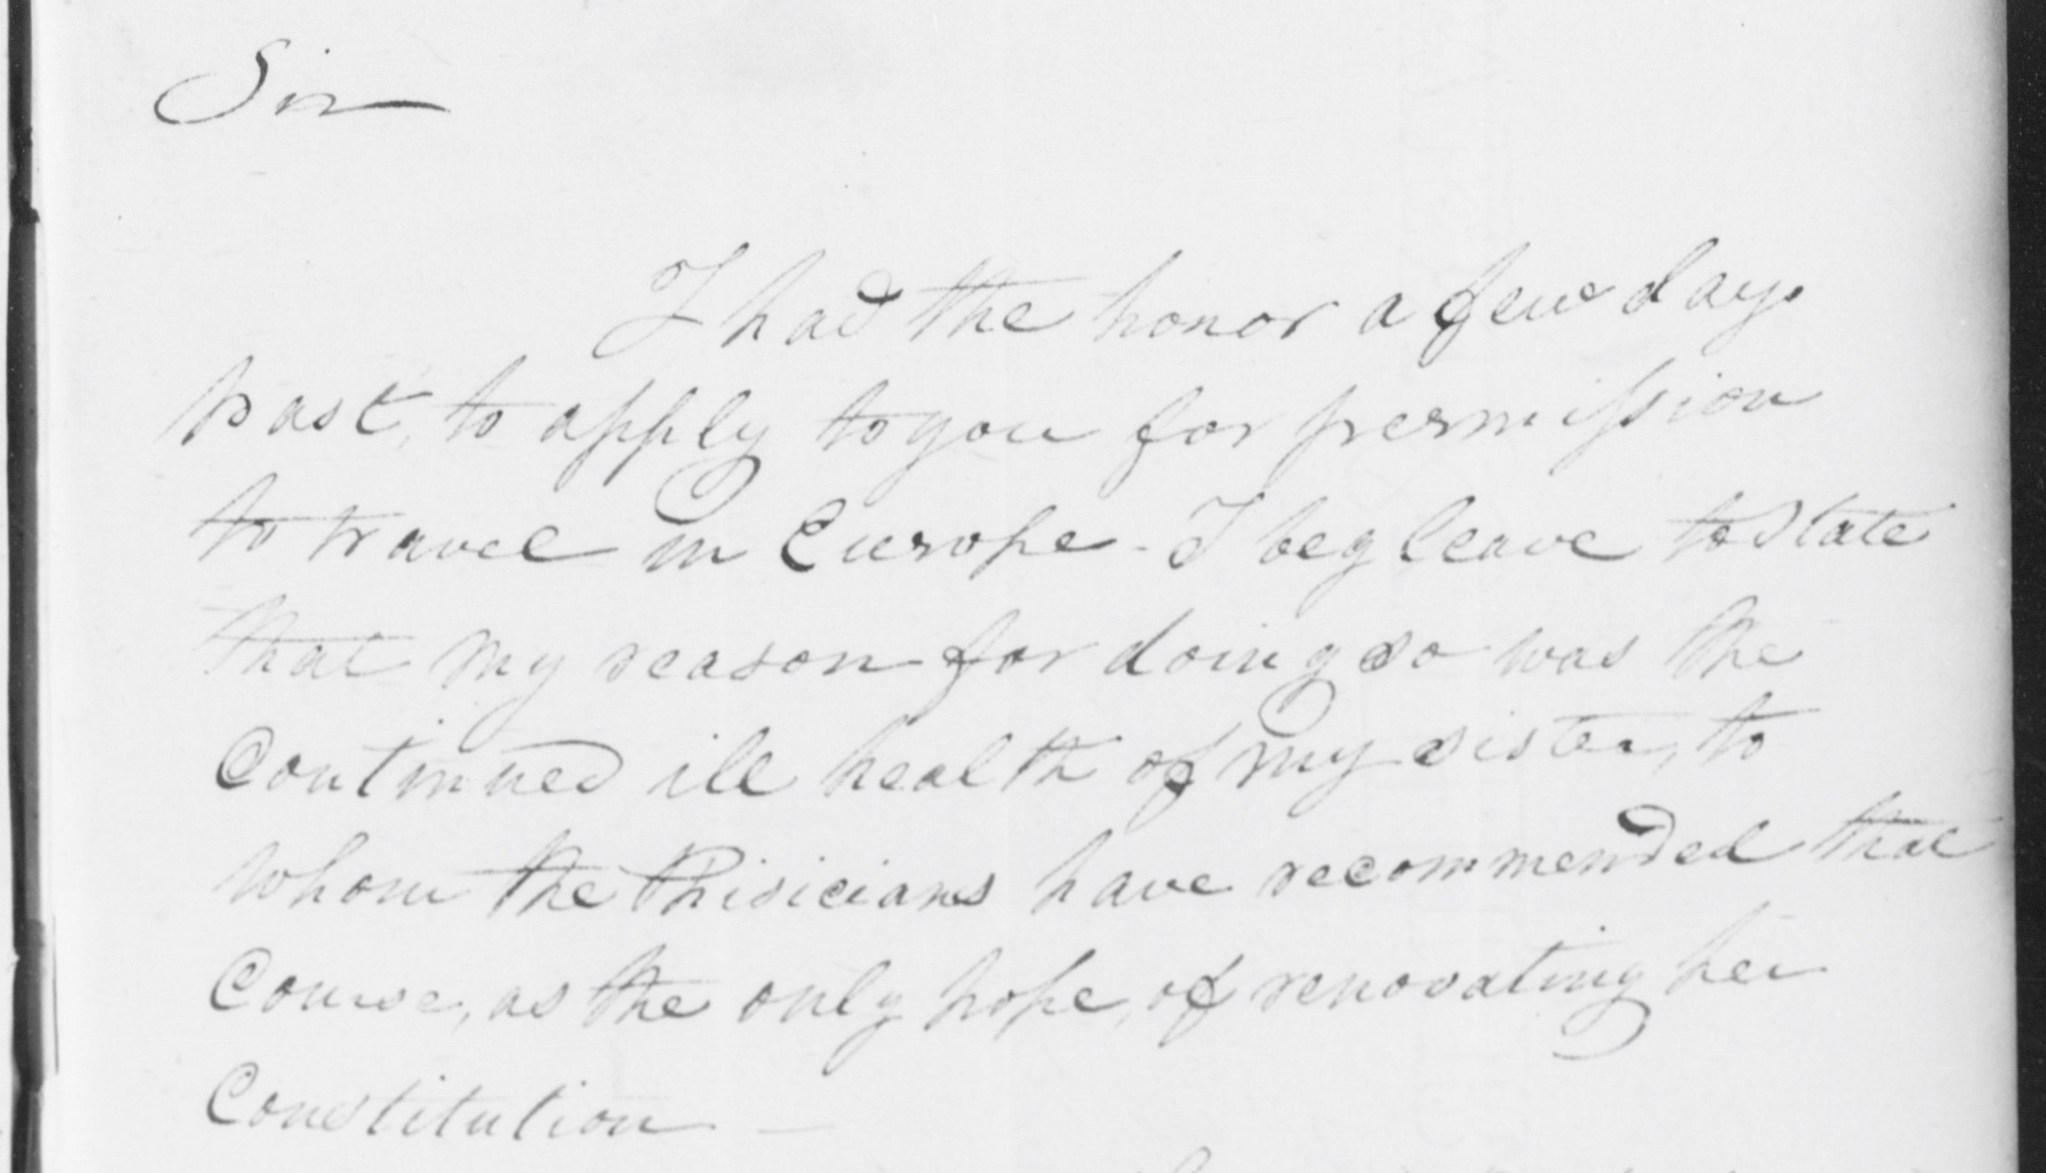 Sir
I had the honor a few days
past, to apply to you for permission
to travel in Europe - I beg leave to state
that my reason for doing so was the
Continued ill health of my sister, to
whom the Phisicians have recommended that
Course, as the only hope, of renovating her
Constitution —